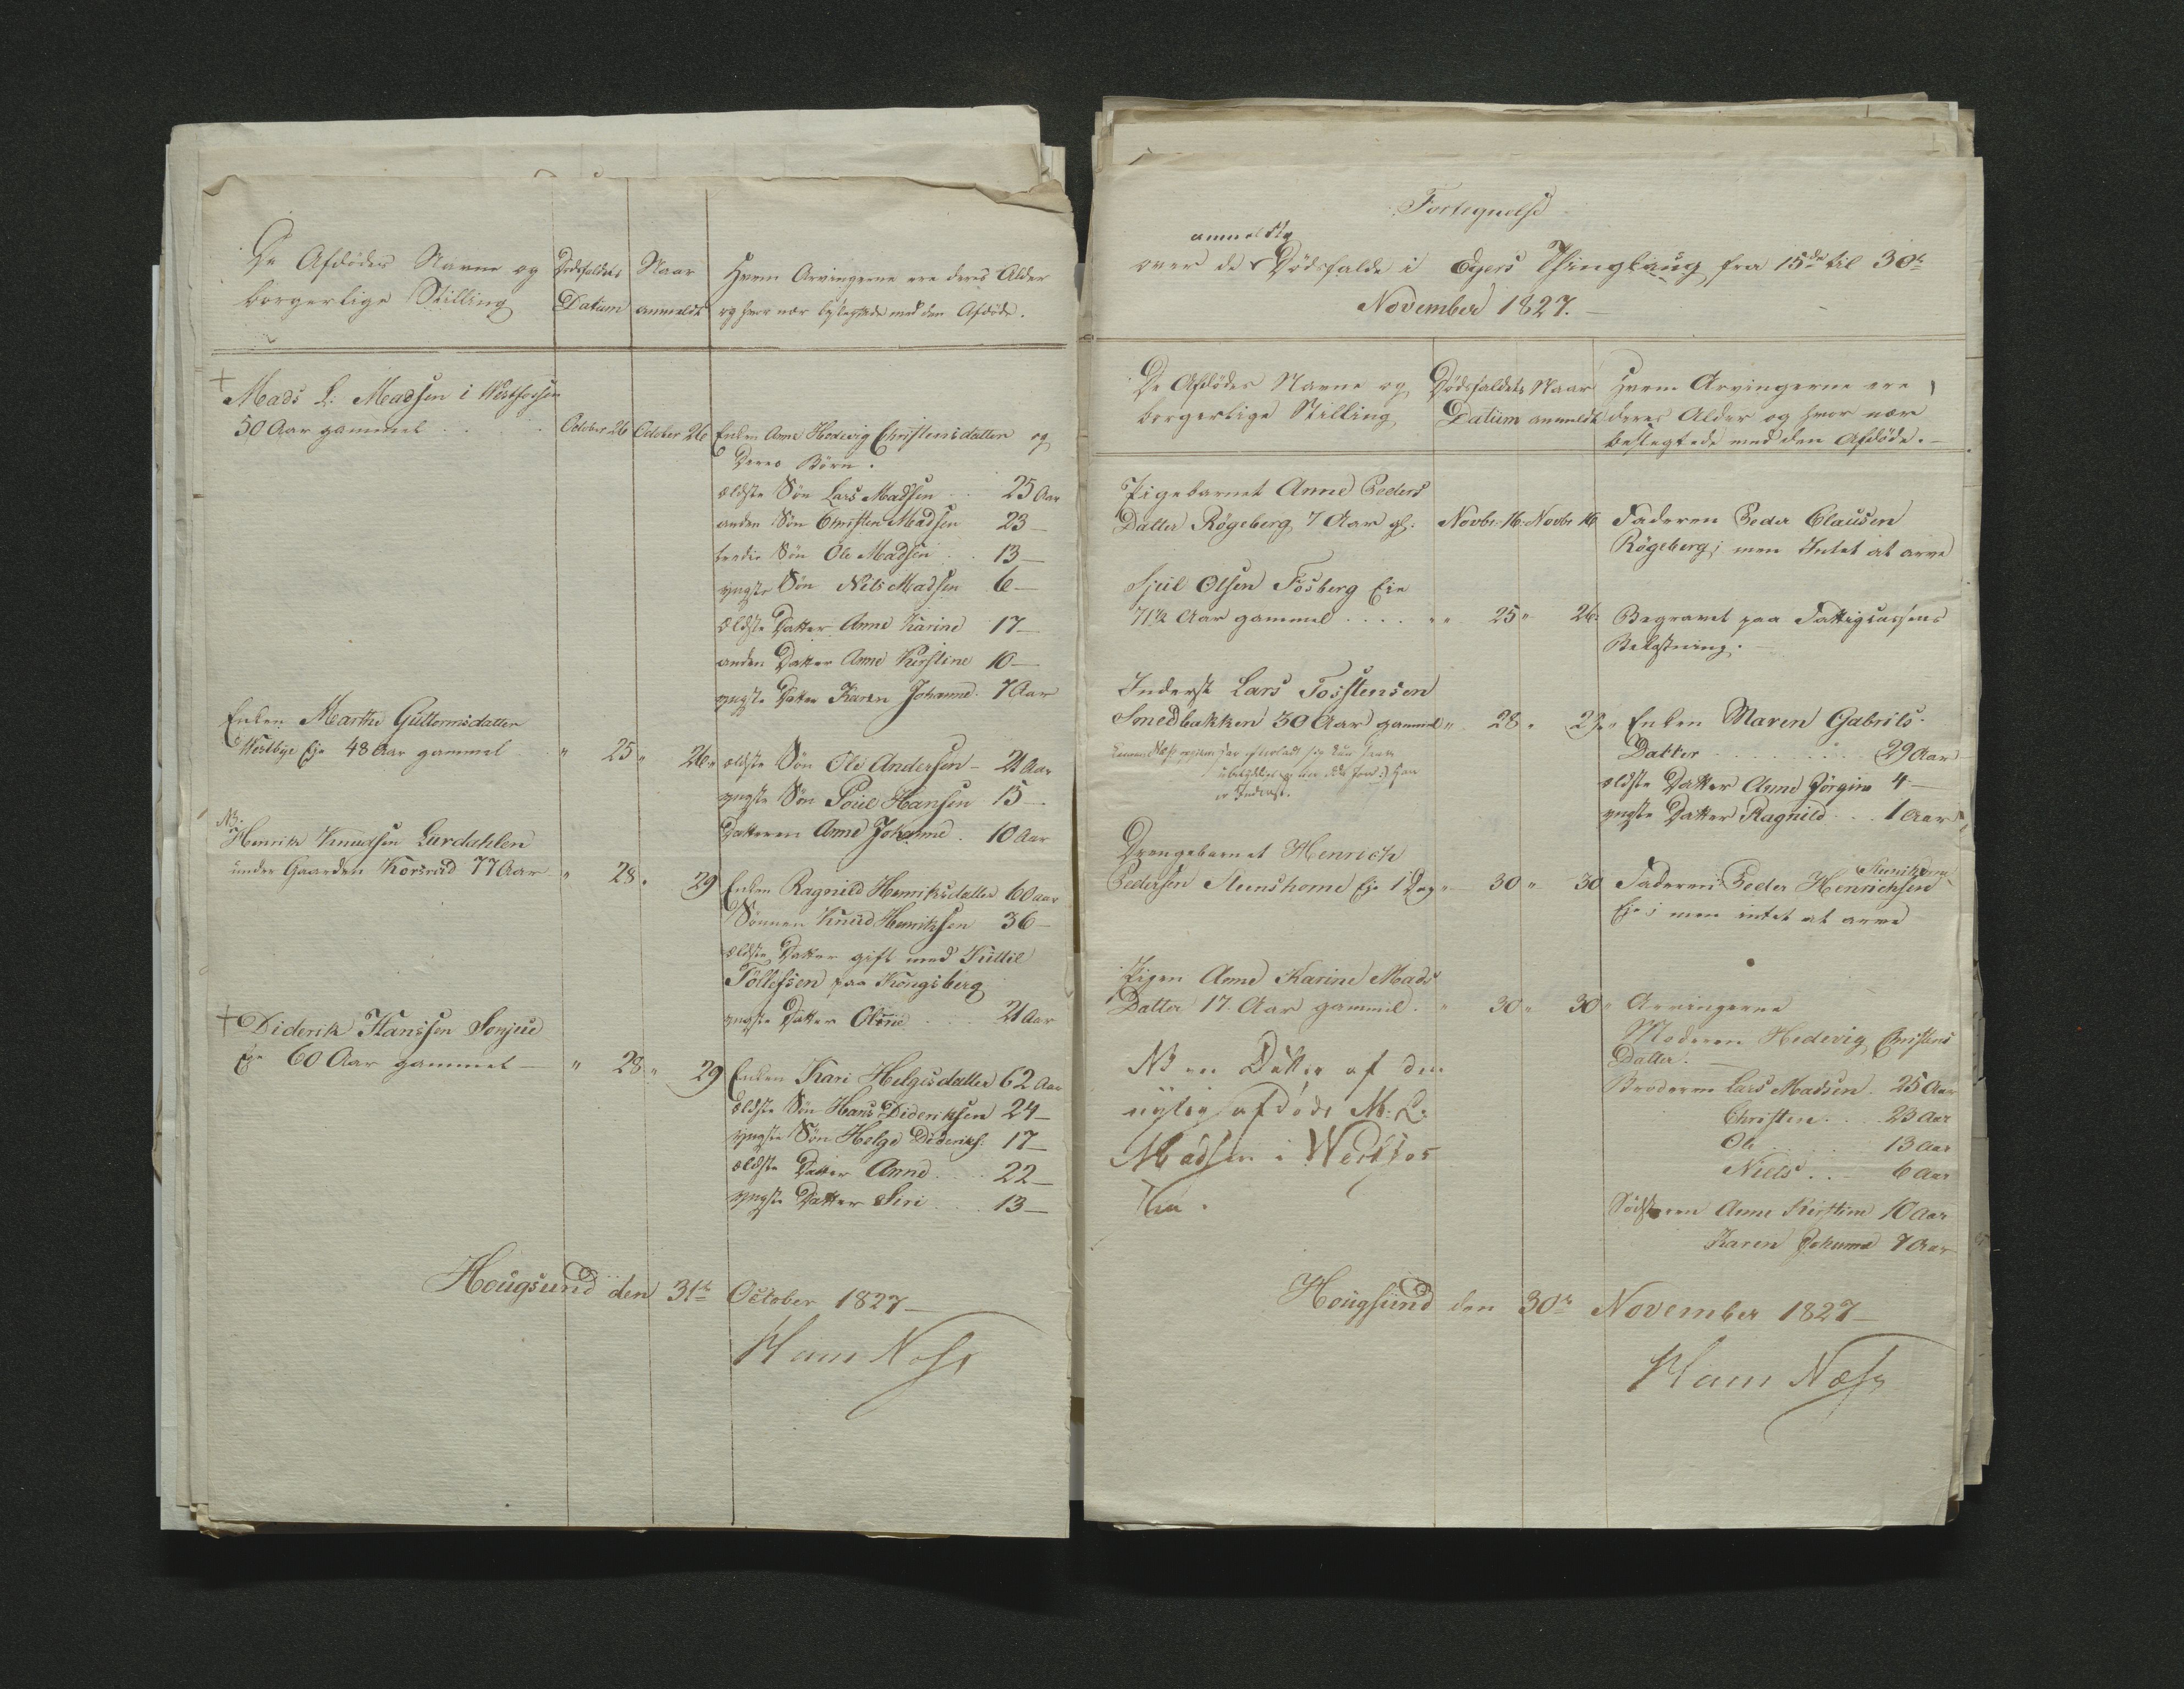 De Afdødes Navne og
borgerlige Stilling
Dødsfaldets
Datum
Naar
anmeldt
Hvem Arvingerne ere deres Alder
og hvor nær beslegtede med den Afdøde.
Mads L. Madsen i Westfossen
50 Aar gammel October 26 October 26 Enken Anne Hedevig Christensdatter og
deres Børn.
ældste Søn Lars Madsen 25 Aar
anden Søn Christen Madsen 23 —
tredie Søn Ole Madsen 13 —
yngste Søn Nels Madsen 6 —
Ældste Datter Anne Karine 17 —
anden Datter Anne Kirstine 10 —
yngste Datter Karen Johanne 7 Aar
Enken Marthe Guttormsdatter
Westbye Eje 48 Aar gammel " 25 " 26 " ældste Søn Ole Andersen — 21 Aar
yngste Søn Poüel Hansen 15 —
Datteren Anne Johanne 10 Aar
NB.
Henrik Knudsen Lurdahlen
under Gaarden Korsrud 77 Aar " 28 " 29 Enken Ragnild Henriksdatter 60 Aar
Sønnen Knud Henriksen 36 —
ældste Datter gift med Kittil
Tollefsen paa Kongsberg
yngste Datter Olene 21 Aar
Diderik Hanssen Sonjue
Eje 60 Aar gammel — " 28 " 29 Enken Kari Helgesdatter 62 Aar
ældste Søn Hans Dideriksen 24 —
yngste Søn Helge Dideriks. 17 —
ældste Datter Anne 22 —
yngste Datter Siri 13 —
Hougsund den 31te October 1827 —
Ham Næss
Fortegnelse
anmeldte
over de Dødsfalde i Egers Thinglaug fra 15de til 30te
November 1827. —
De Afdødes Navne og
borgerlige Stilling
Dødsfaldets
Datum
Naar
anmeldt
Hvem Arvingerne ere,
deres Alder og hvor nær
beslegtede med den Afdøde. —
Pigebarnet Anne Peders
Datter Røgeberg 7 Aar gl. Novbr. 16 Novbr 16 Faderen Peder Clausen
Røgeberg; men Intet at arve
Sjul Olsen Fosberg Eje
71½ Aar gammel . . . . " 25 " 26 Begravet paa Fattigcassens
Bekostning. —
Inderst Lars Tosstensen
Smedbakken 30 Aar gammel " 28 " 29 " Enken Maren Gabriels
Datter 29 Aar
ældste Datter Anne Jørgine 4 —
yngste Datter Ragnild 1 Aar
er Inderst.
Drengebarnet Henrich
Pedersen Steenshorne Eje 1 Dag " 30 " 30 Faderen Peder Henrichsen Steenshorne
Eje; men intet at arve
Pigen Anne Karine Mads
Datter 17 Aar gammel " 30 " 30 " Arvingerne
Moderen Hedevig Christens
Datter. —
Brøderne Lars Madsen 25 Aar
Christen 23 Aar
Ole 13 Aar
Niels 6 Aar
Sødstrene Anne Kirstine 10 Aar
Karen Johanne 7 Aar
NB en Datter af den
nylig afdøde M. L.
Madsen i Westfos
sen.
Hougsund den 30te November 1827 —
Ham Næss